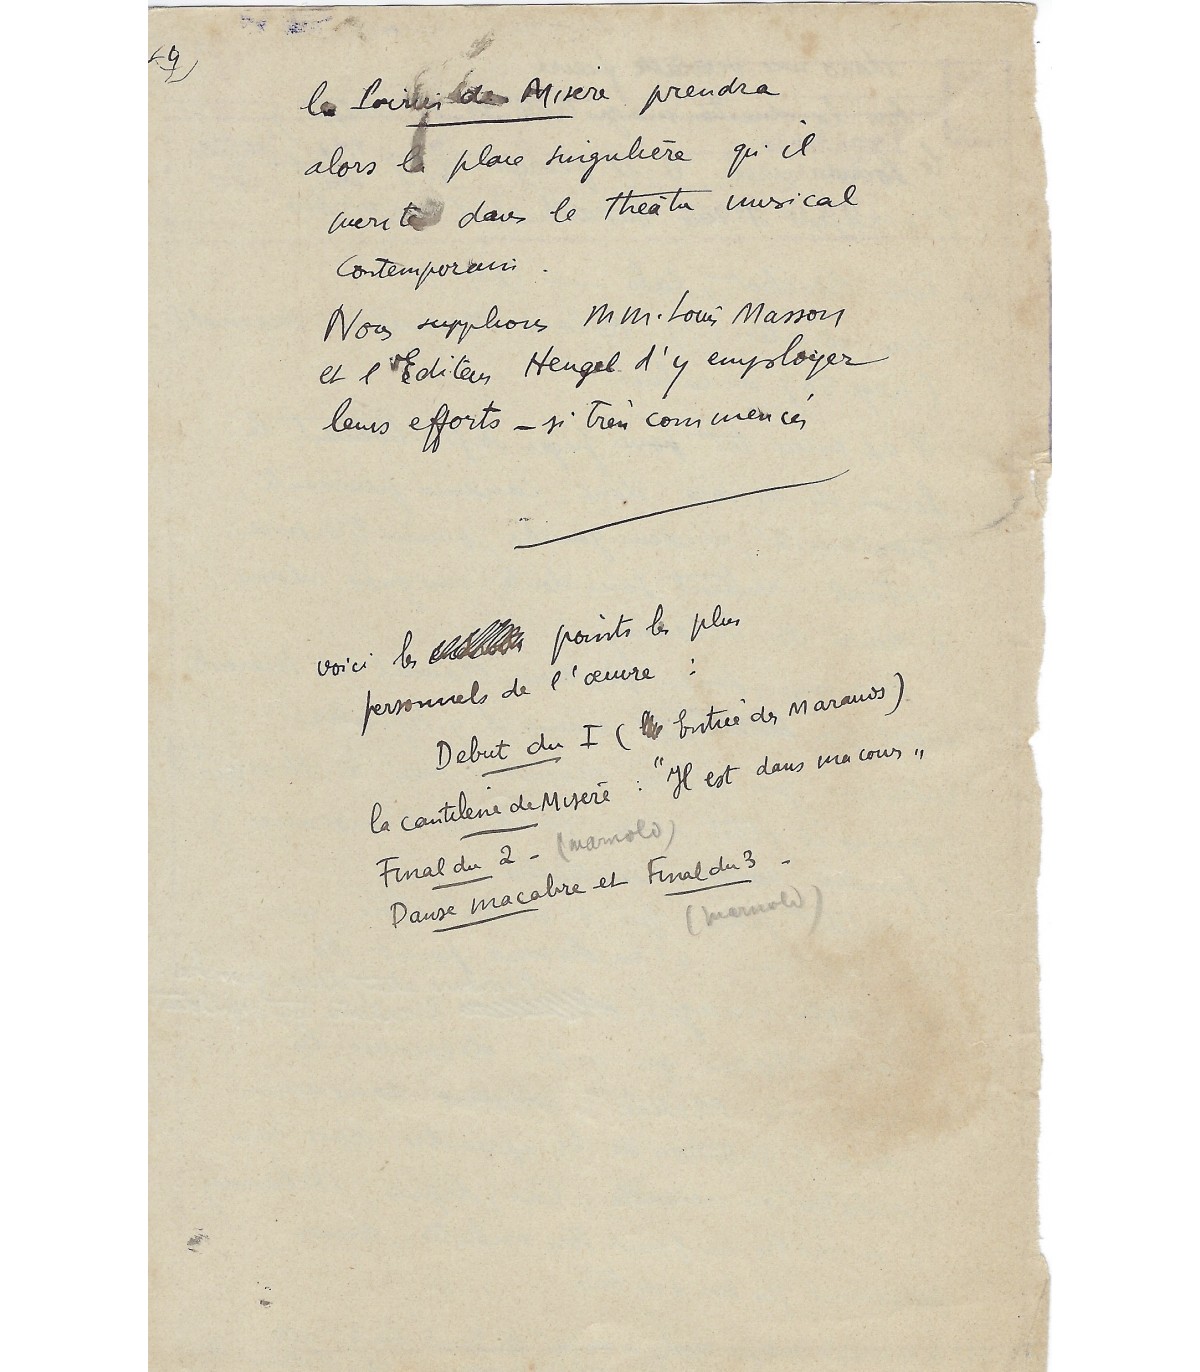 9)
le Poirier de Misère prendra
alors la place singulière qu'il
merite dans le théâtre musical
contemporain.
Nous supplions MM. Louis Masson
et l'Editeur Heugel d'y employer
leurs efforts – si très commencés
voici les points les plus
personnels de l'œuvre :
Debut du I ( Entrée des Maranos)
la cantilène de Misère : "Il est dans ma cour"
Final du 2 - (marnold)
Danse macabre et Final du 3 -
(marnold)